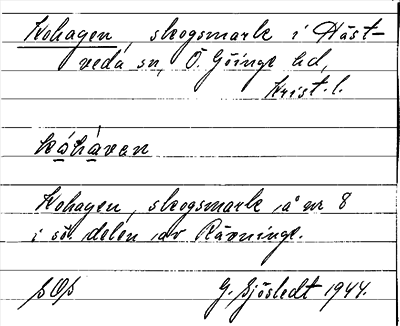 Kohagen, skogsmark i Häst-
veda sn, Ö. Göinge hd,
Krist. l.
kåhaven
Kohagen, skogsmark å nr 8
i sö. delen av Rävninge.
SOS G. Sjöstedt 1944.